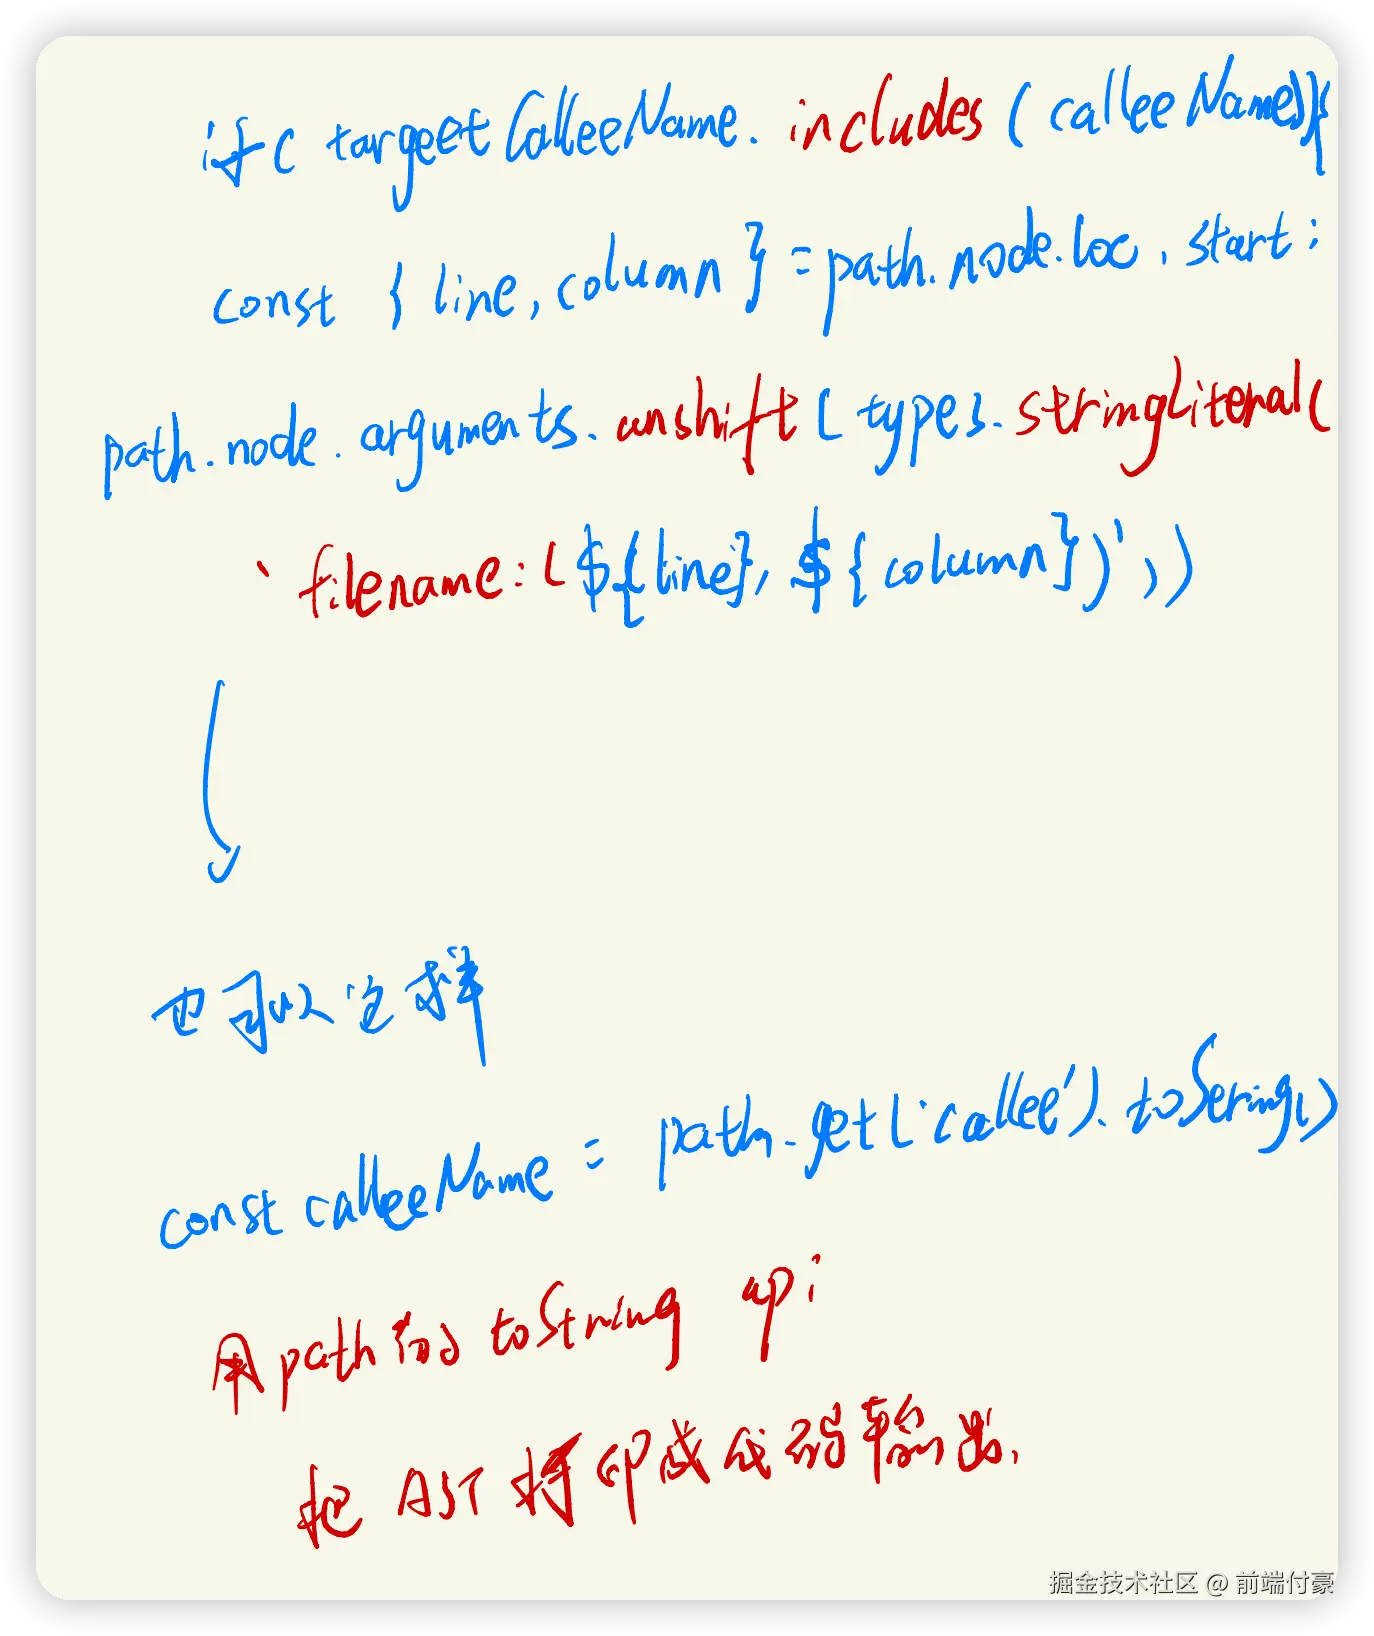 if( targeetCalleeName.includes(calleeName)){
const { line,column } = path.node.loc.start;
path.node.arguments.unshift(types.stringLiteral(
`filename:(${line},${column})`))
也可以这样
const calleeName = path.get('callee').toString()
用path的toString api
把AST打印成代码输出.
掘金技术社区 @ 前端付豪